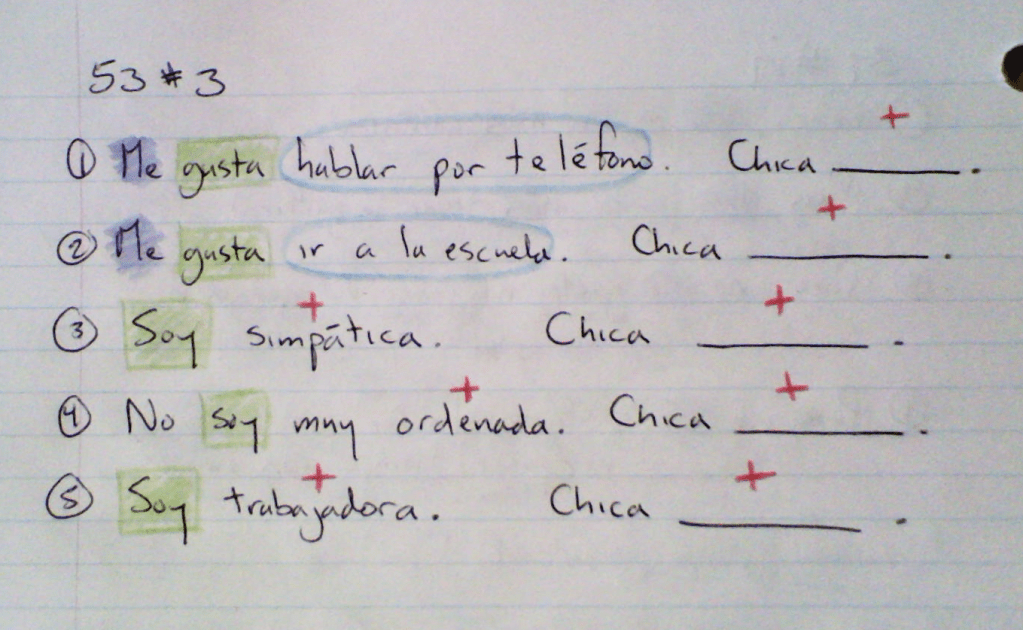 53 # 3
① Me gusta hablar por teléfono. Chica ______. +
② Me gusta ir a la escuela. Chica ______. +
③ Soy simpática. + Chica ______. +
④ No soy muy ordenada. + Chica ______. +
⑤ Soy trabajadora. + Chica ______. +